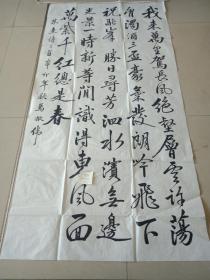 我来萬里駕長風绝壑層雲许蕩
胸濁酒三盃豪氣發朗吟飛下
祝融峯勝日尋芳泗水濱無邊
光景一時新等閒識得東風面
萬紫千红總是春
朱熹诗二首辛卯年秋馬敬